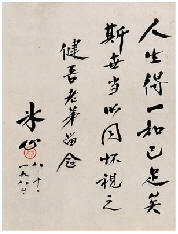 人生得一知己足矣
斯世当以同怀视之
健吾老弟留念
冰心